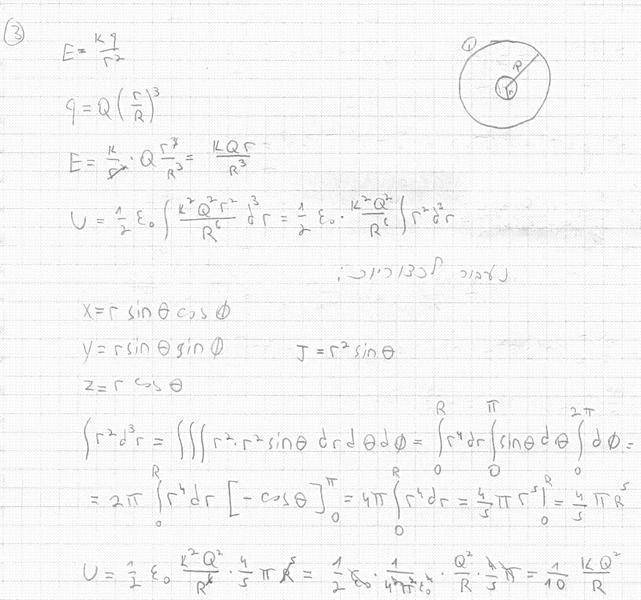 3
E = kq/r²
Q
R
r
q = Q(r/R)³
E = k/r² · Q r³/R³ = kQr/R³
U = 1/2 ε₀ ∫ k²Q²r²/R⁶ d³r = 1/2 ε₀ · k²Q²/R⁶ ∫ r² d³r
נעבור לכדוריות:
x = r sinθ cosϕ
y = r sinθ sinϕ J = r² sinθ
z = r cosθ
∫ r² d³r = ∫∫∫ r² · r² sinθ dr dθ dϕ = ∫₀ᴿ r⁴ dr ∫₀^π sinθ dθ ∫₀^2π dϕ =
= 2π ∫₀ᴿ r⁴ dr [-cosθ]₀^π = 4π ∫₀ᴿ r⁴ dr = 4/5 π r⁵ |₀ᴿ = 4/5 π R⁵
U = 1/2 ε₀ k²Q²/R⁶ · 4/5 π R⁵ = 1/2 ε₀ · 1/4²π²ε₀² · Q²/R · 4/5 π = 1/10 kQ²/R